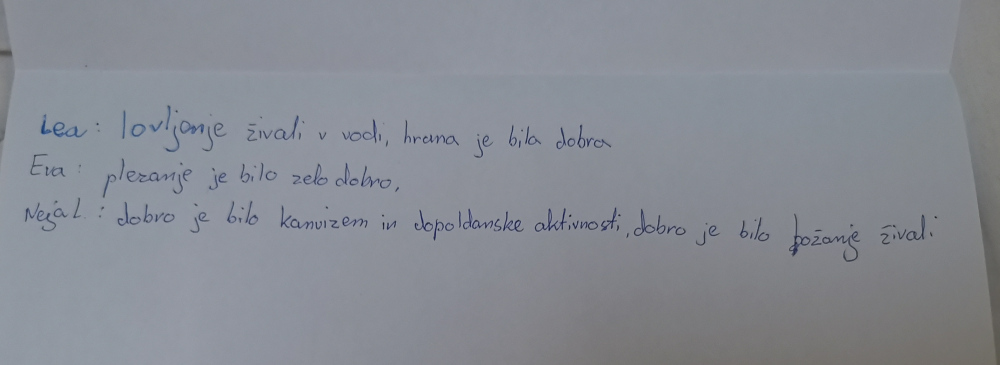 Lea: lovljanje živali v vodi, hrana je bila dobra
Eva: plezanje je bilo zelo dobro,
Neja L.: dobro je bilo kanuizem in dopoldanske aktivnosti, dobro je bilo božanje živali